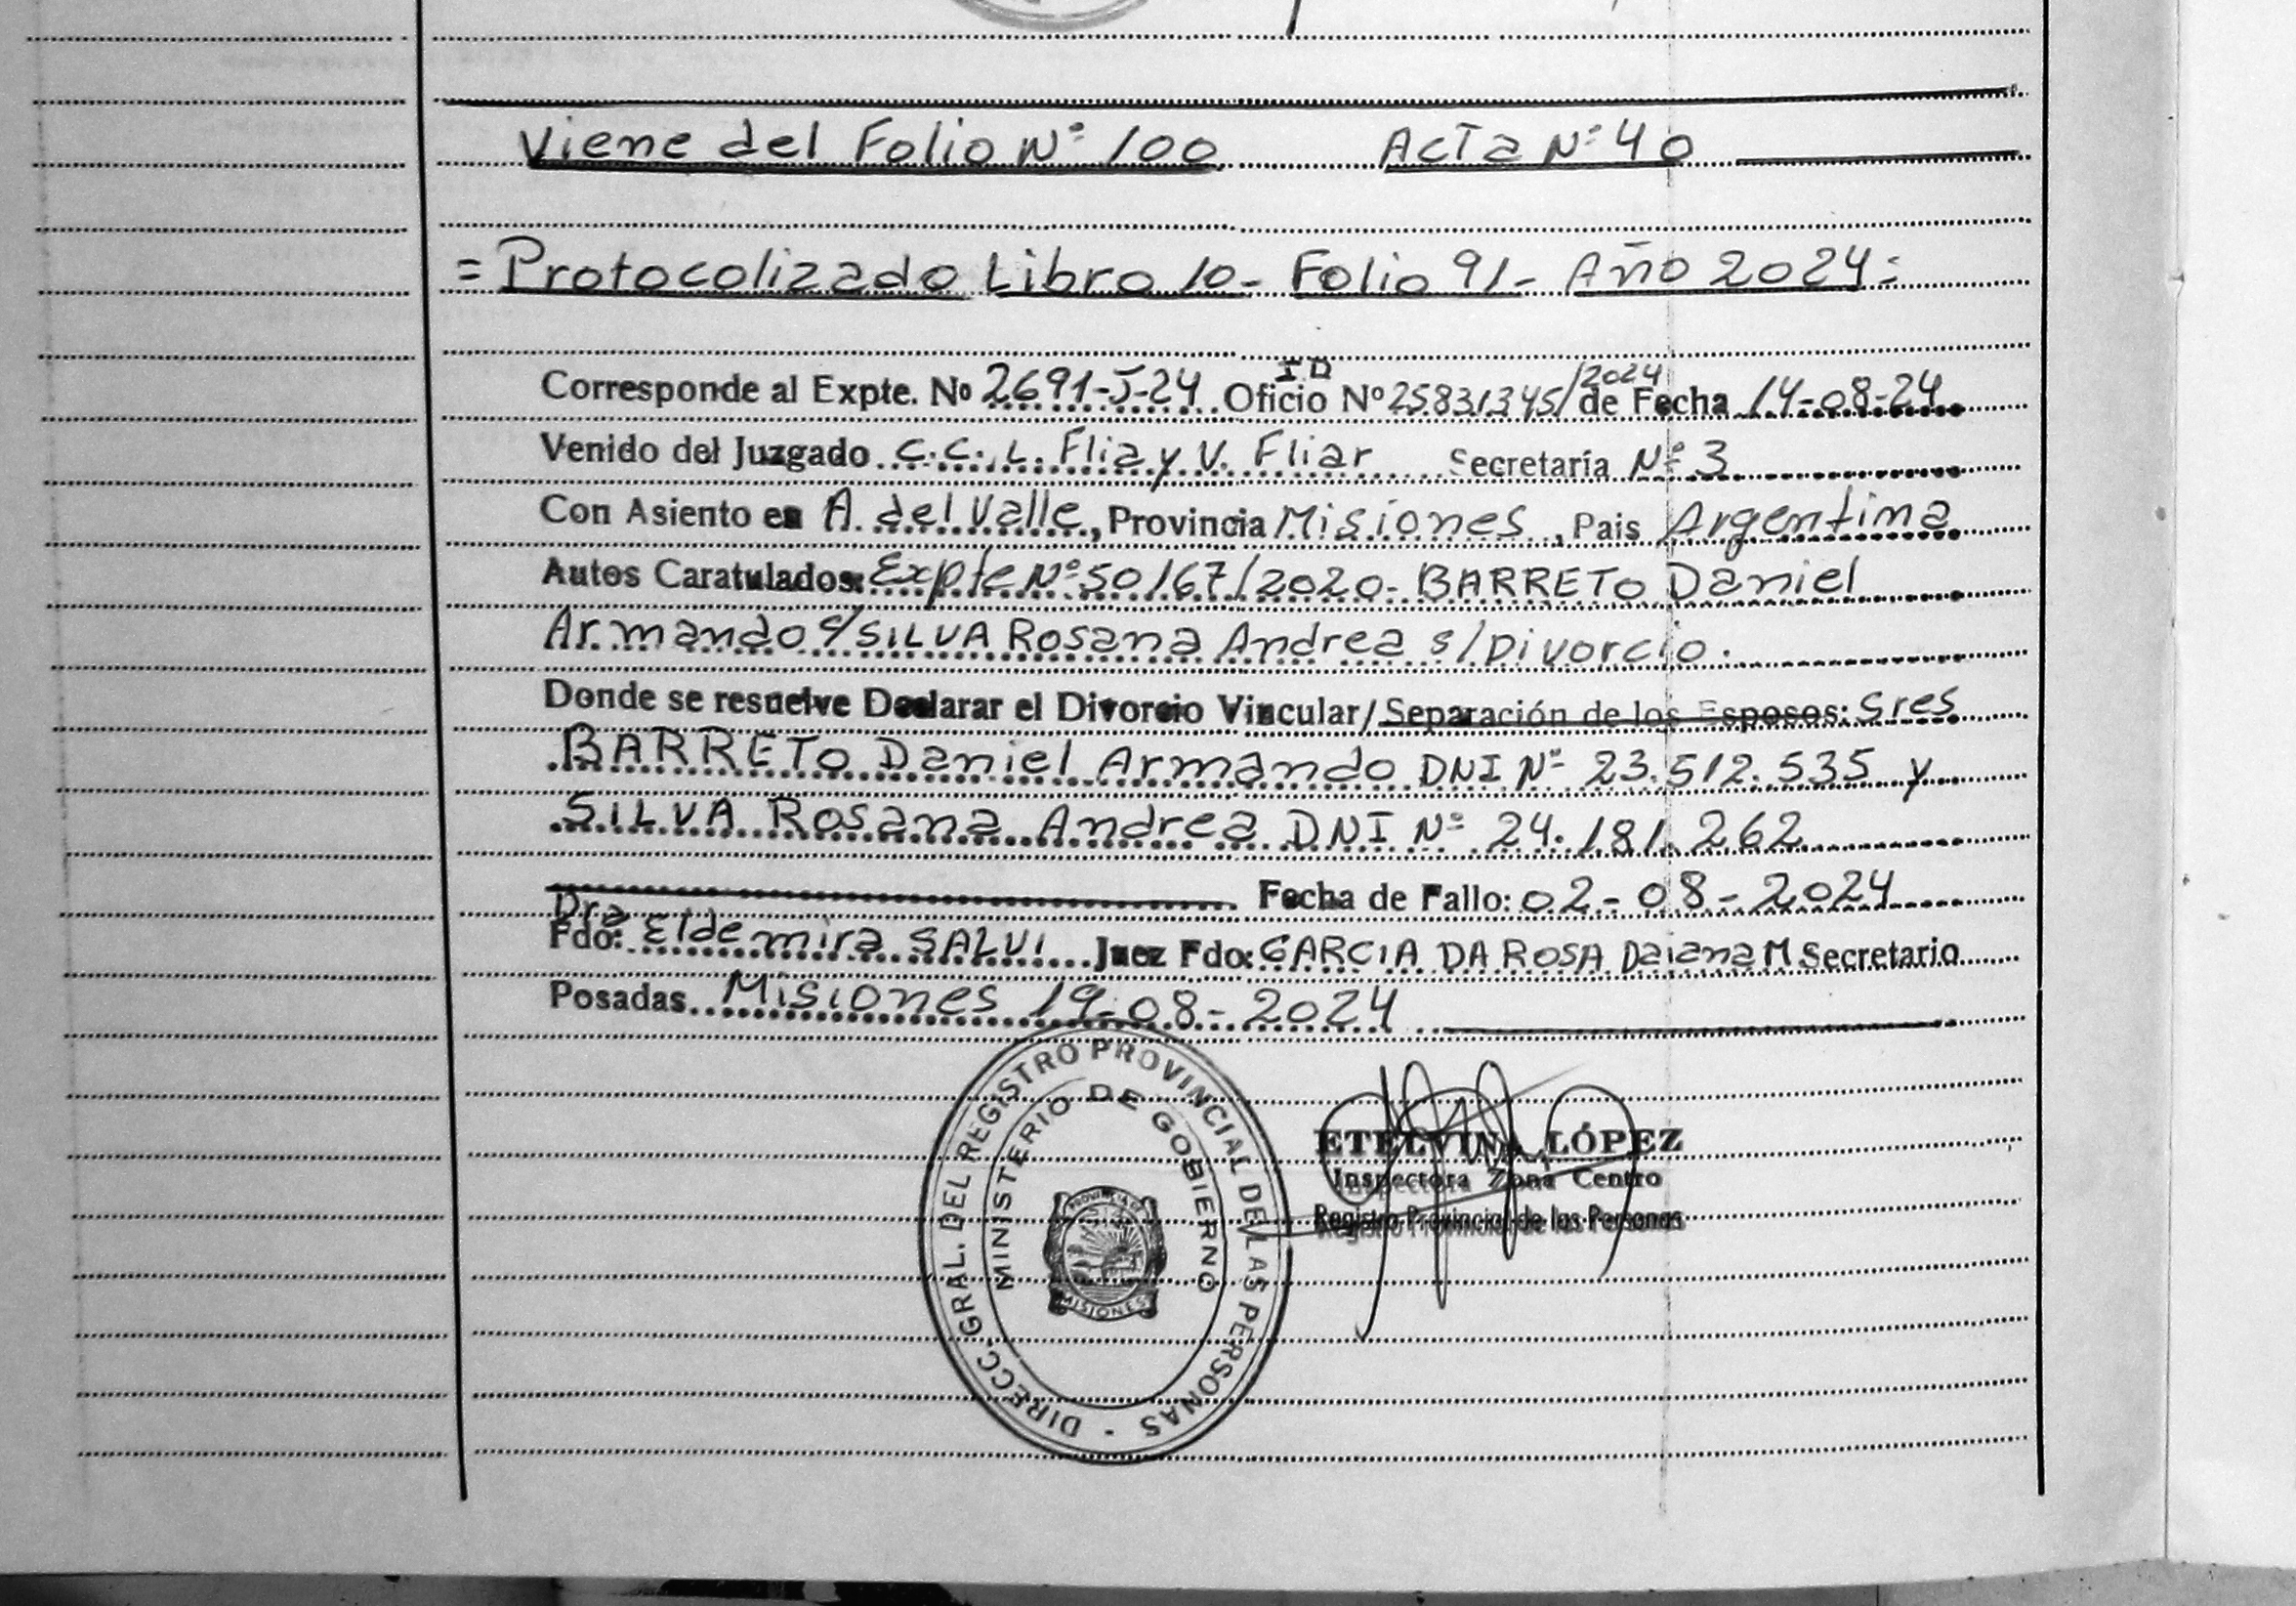 Viene del Folio Nº 100 Acta Nº 40
= Protocolizado Libro 10- Folio 91- Año 2024=
Corresponde al Expte. Nº 2691-J-24 Oficio ID Nº 25831345/2024 de Fecha 14-08-24
Venido del Juzgado C.C. L. Flia y V. Fliar Secretaría Nº 3
Con Asiento en A. del Valle, Provincia Misiones, Pais Argentina
Autos Caratulados: Expte Nº 50167/2020- BARRETO Daniel
Armando c/ SILVA Rosana Andrea s/Divorcio.
Donde se resuelve Declarar el Divorcio Vincular/Separación de los Esposos: Sres
BARRETO Daniel Armando DNI Nº 23.512.535 y
SILVA Rosana Andrea DNI Nº 24.181.262
Fecha de Fallo: 02-08-2024
Fdo: Dra Eldemira SALVI Juez Fdo: GARCIA DA ROSA Daiana M. Secretario
Posadas Misiones 19-08-2024
DIRECC. GRAL. DEL REGISTRO PROVINCIAL DE LAS PERSONAS
MINISTERIO DE GOBIERNO
PROVINCIA DE
MISIONES
ETELVINA LÓPEZ
Inspectora Zona Centro
Registro Provincial de las Personas